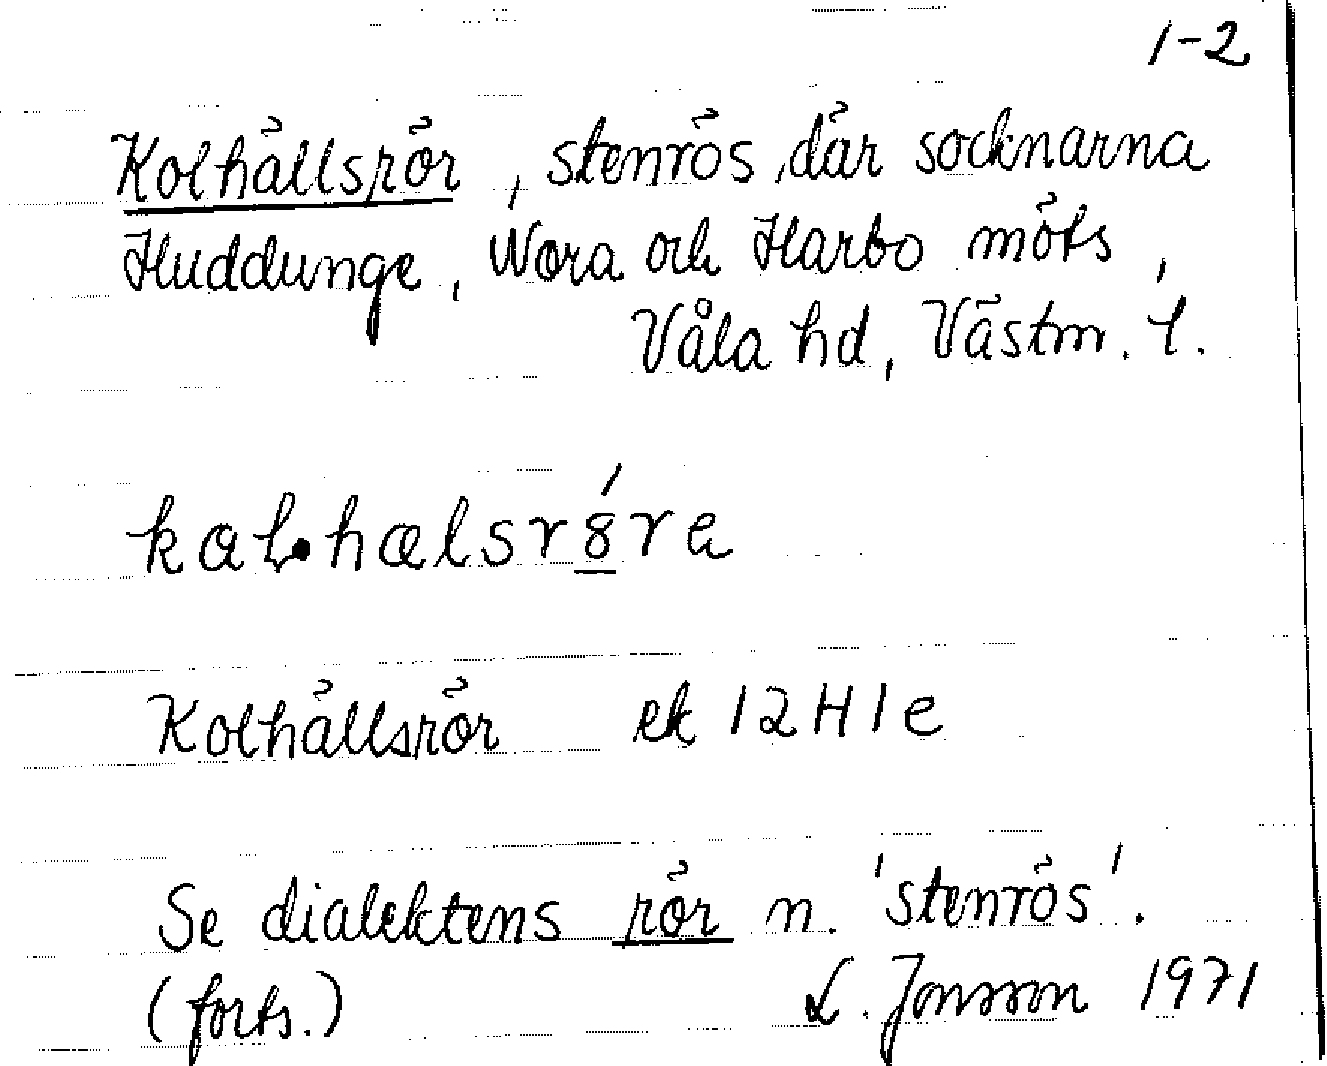 1-2
Kolhällsrör, stenrös, där socknarna
Huddunge, Nora och Harbo möts,
Våla hd, Västm. l.
Kolhällsrör ek 12H1e
Se dialektens rör n. 'stenrös'.
(forts.) L. Jonsson 1971